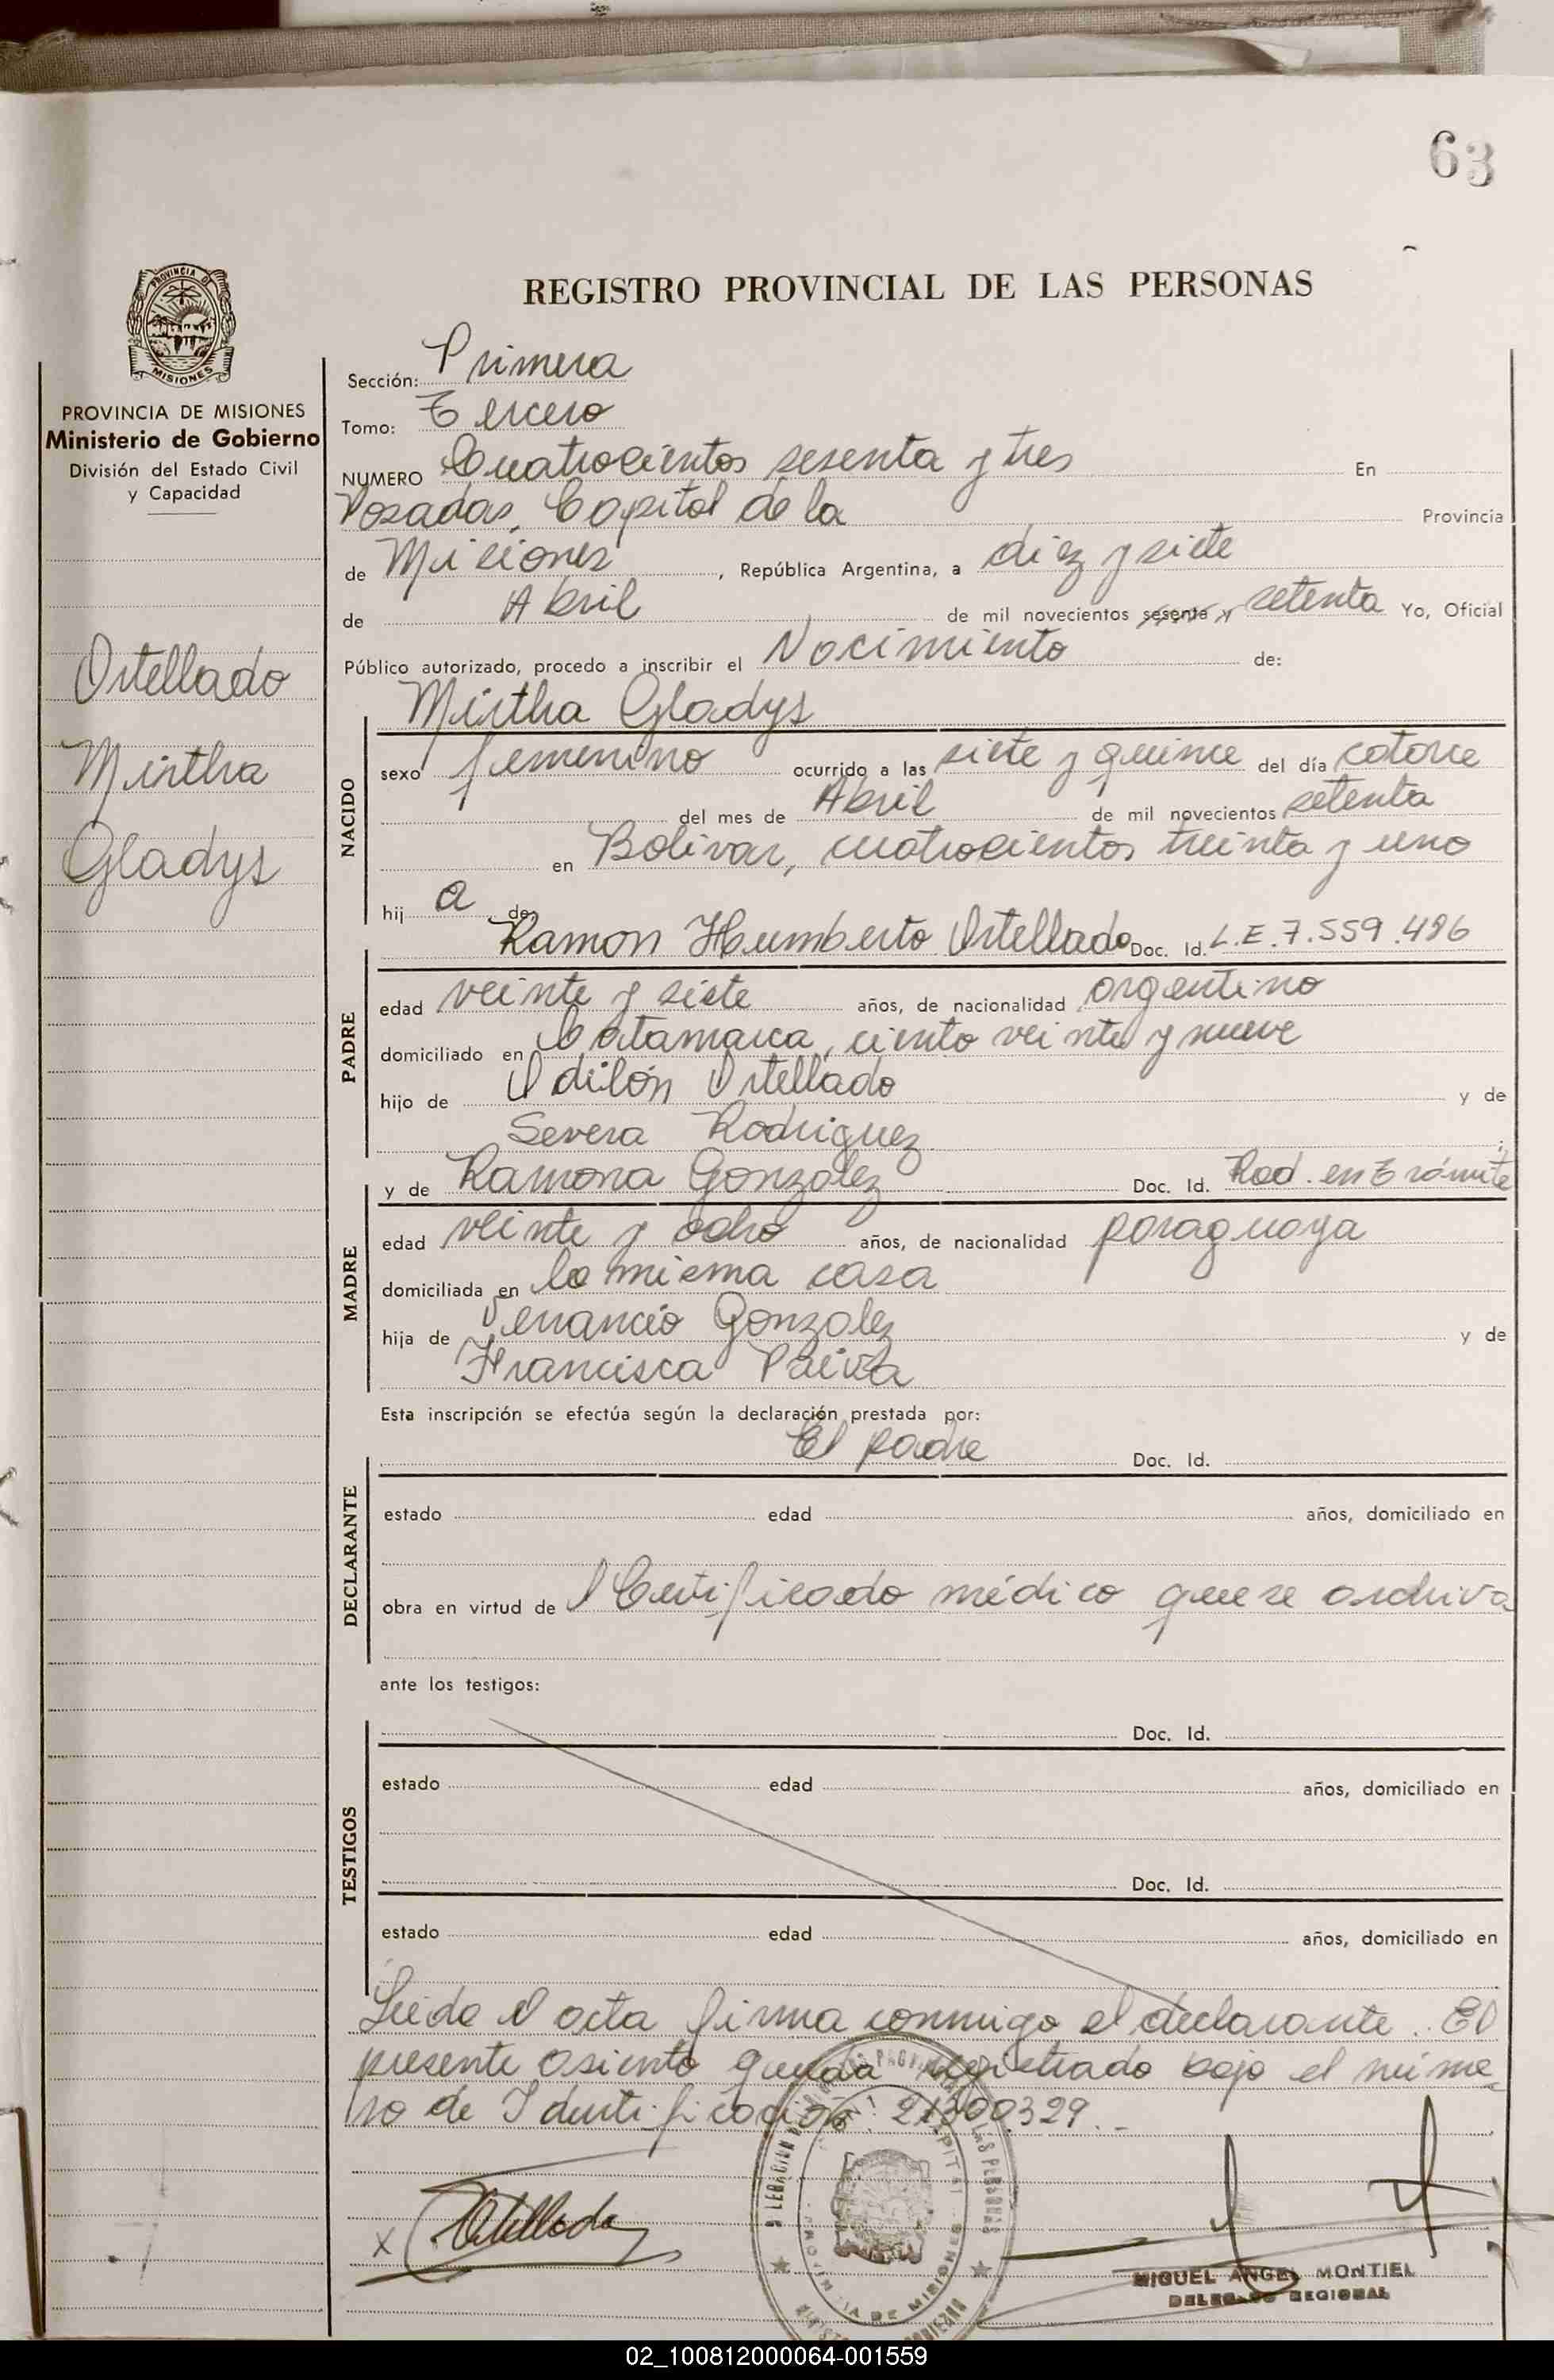 63
REGISTRO PROVINCIAL DE LAS PERSONAS
PROVINCIA DE
MISIONES
PROVINCIA DE MISIONES
Ministerio de Gobierno
División del Estado Civil
y Capacidad
Ortellado
Mirtha
Gladys
Sección: Primera
Tomo: Tercero
NUMERO Cuatrocientos sesenta y tres En
Posadas, Capital de la Provincia
de Misiones, República Argentina, a diez y siete
de Abril de mil novecientos sesenta y setenta Yo, Oficial
Público autorizado, procedo a inscribir el Nacimiento de:
Mirtha Gladys
NACIDO
sexo femenino ocurrido a las siete y quince del día catorce
del mes de Abril de mil novecientos setenta
en Bolivar, cuatrocientos treinta y uno
hij a de
Ramon Humberto Ortellado Doc. Id. L.E. 7.559.486
PADRE
edad veinte y siete años, de nacionalidad argentino
domiciliado en Catamarca, ciento veinte y nueve
hijo de Odilón Ortellado y de
Severa Rodriguez
y de Ramona Gonzalez Doc. Id. Rad. en Trámite
MADRE
edad veinte y ocho años, de nacionalidad paraguaya
domiciliada en la misma casa
hija de Venancio Gonzalez y de
Francisca Paiva
Esta inscripción se efectúa según la declaración prestada por:
El padre Doc. Id.
DECLARANTE
estado edad años, domiciliado en
obra en virtud de l Certificado médico que se archiva
ante los testigos:
Doc. Id.
TESTIGOS
estado edad años, domiciliado en
Doc. Id.
estado edad años, domiciliado en
Leida el acta firma conmigo el declarante. El
presente asiento queda registrado bajo el núme
ro de Identificación: 21300329.-
x Ortellado
MIGUEL ANGEL MONTIEL
DELEGADO REGIONAL
02_100812000064-001559